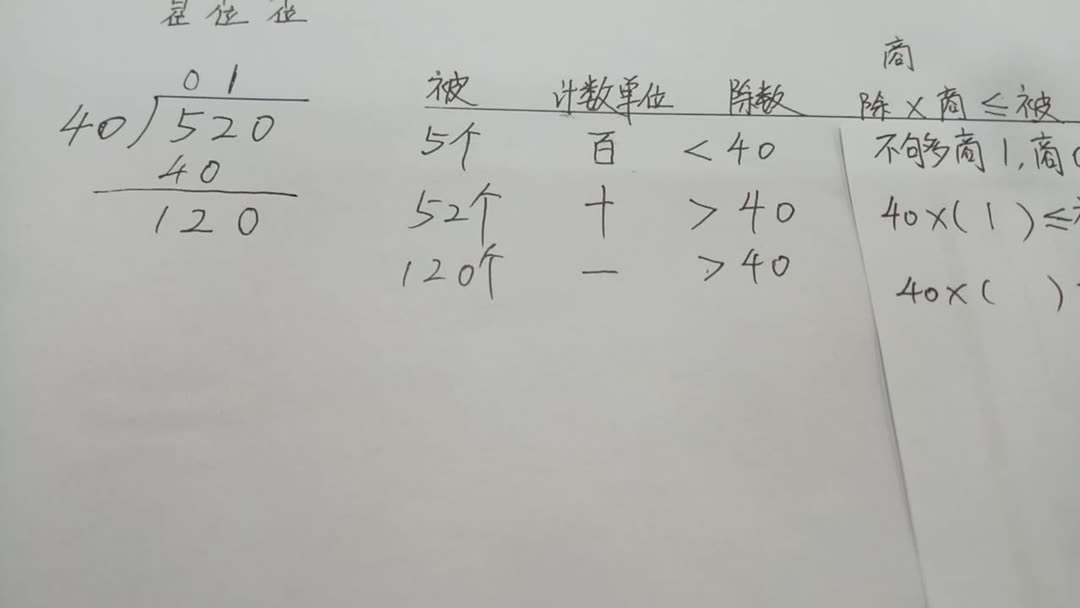 位 位
0 1
40 520
40
120
商
被 计数单位 除数 除×商≤被
5个 百 <40 不够商1,商0
52个 十 >40 40×(1)≤
120个 一 >40 40×( )